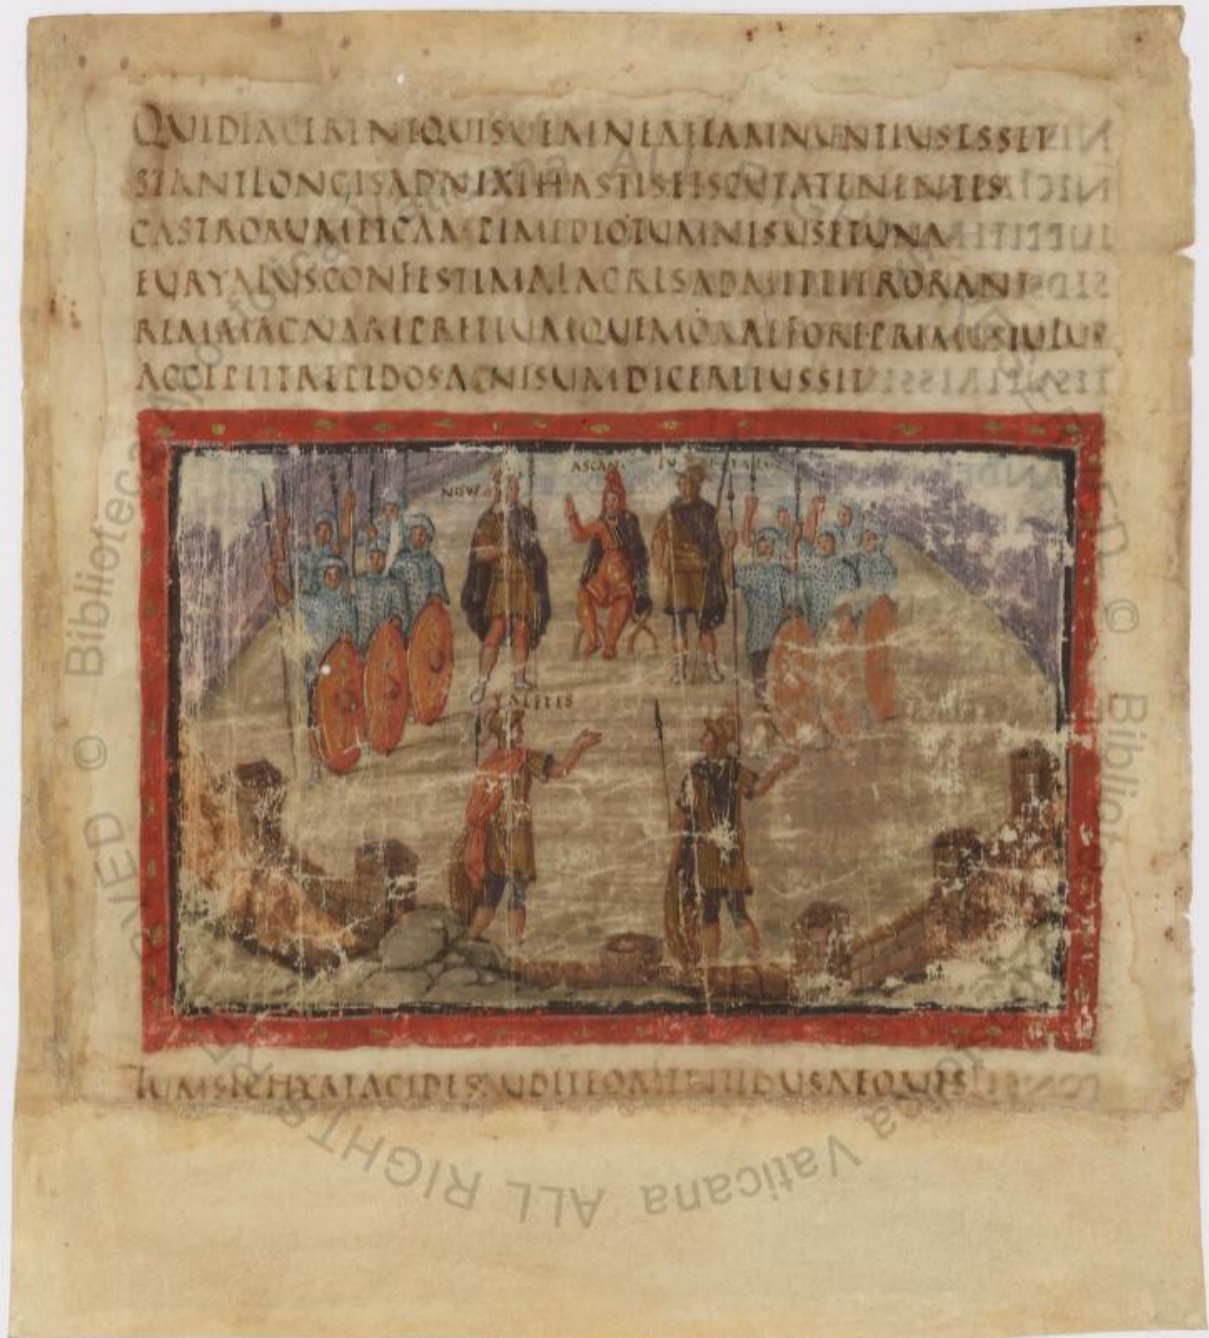 QUIDFACERENTQUISUEAENEAEIAMNUNTIUSESSET
STANTLONGISADNIXIHASTISETSCUTATENENTES
CASTRORUMETCAMPIMEDIOTUMNISUSETUNA
EURYALUSCONFESTIMALACRESADMITTIERORANT
REMMAGNAMPRETIUMQUEMORAEFOREPRIMUSIULUS
ACCEPITTREPIDOSACNISUMDICEREIUSSIT
NISUS ASCANI
ALETES
TUMSICHYRTACIDESAUDITEOMENTIBUSAEQUIS
© Biblioteca Apostolica Vaticana ALL RIGHTS RESERVED